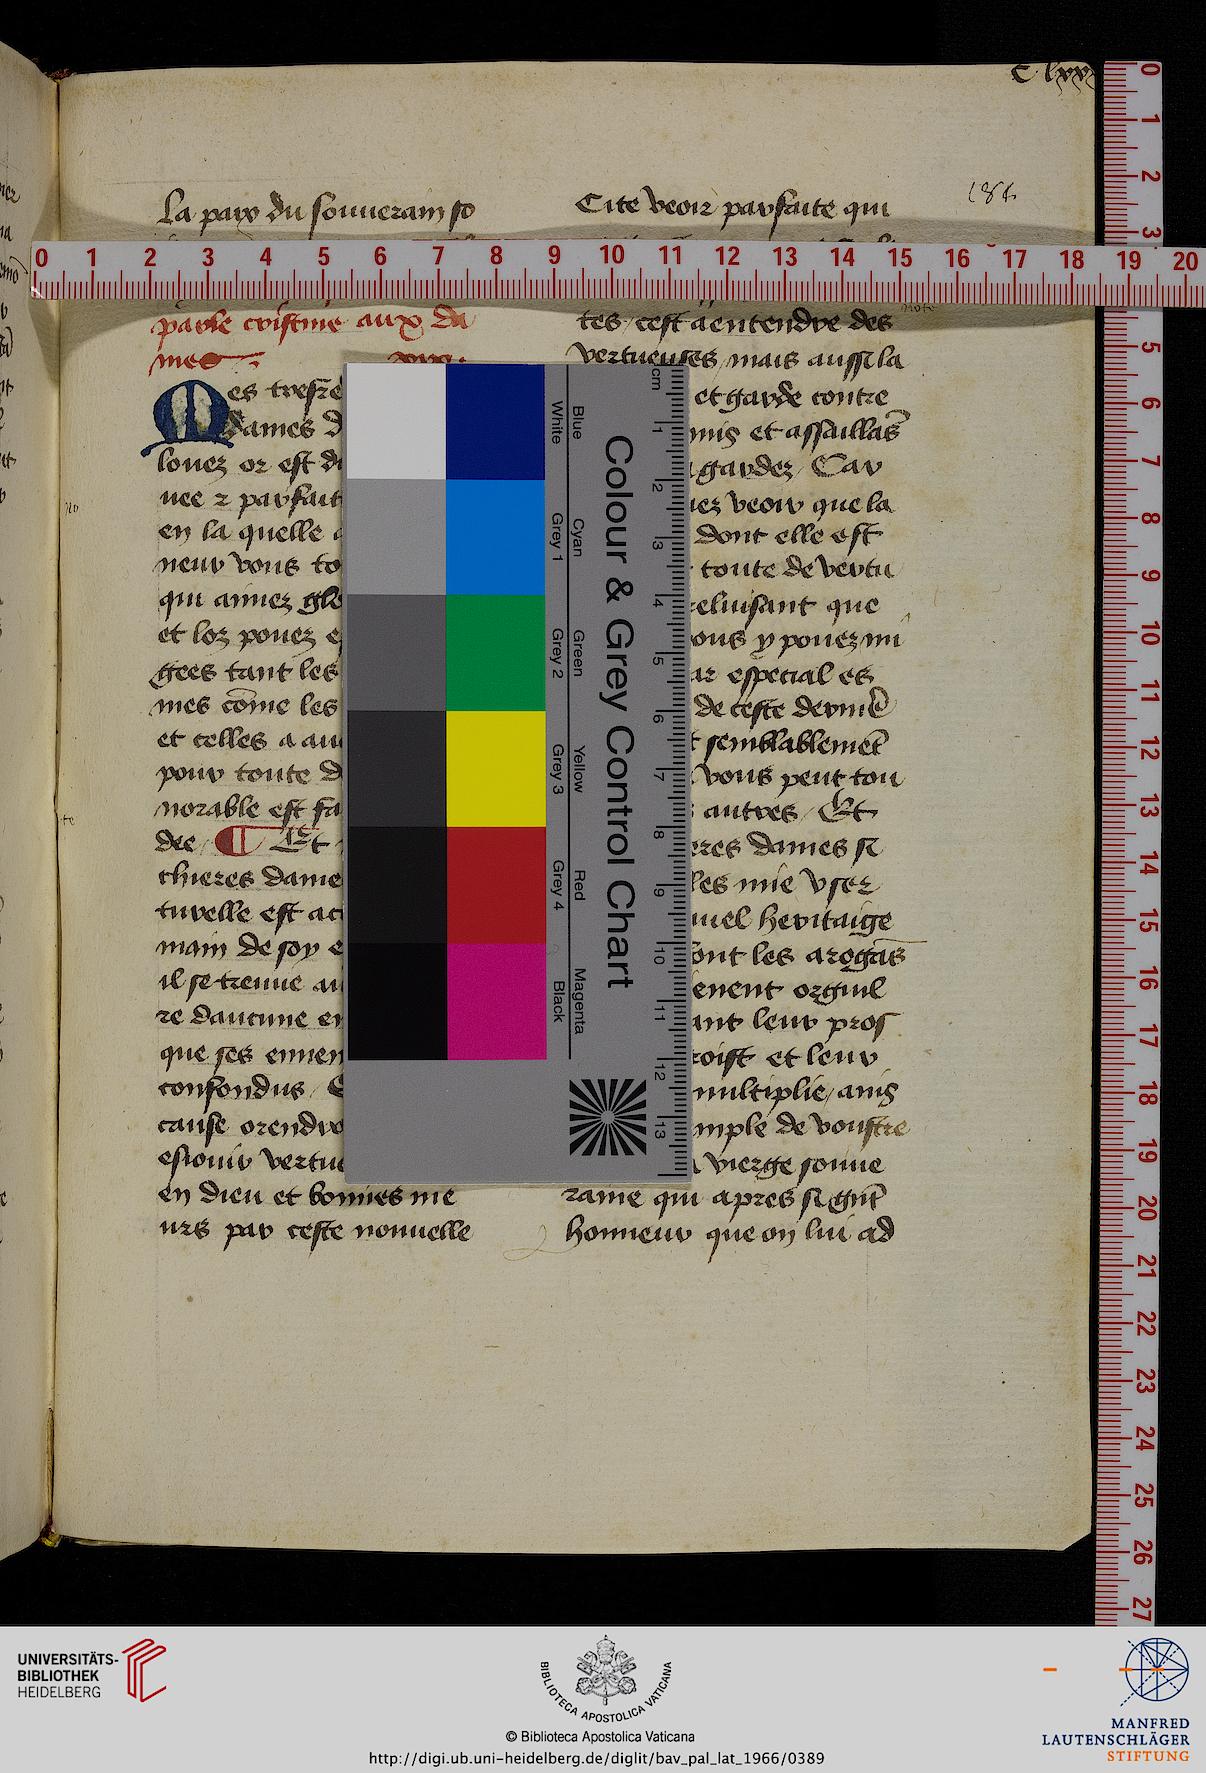 C lxx
184
la paix du souuerain so
parle cristine aux da
mes
Mes tresre
dames
louez or est
uee 2 parfait
en la quelle
neur vous
qui aimez
et loz pouez
gees tant les
mes co̅me les
et celles a
pour toute
norable est
dee Et
chieres dame
turelle est
main de soy
il se treuue
re daucune
que ses
confondus
cause orendro
esiouir vertue
en dieu et bonnes me
urs par ceste nouuelle
Cite veoir parfaite qui
note
tes cest aentendre des
vertueuses mais aussi la
et garde contre
et assaillās
gardez Car
veoir que la
dont elle est
toute de vertu
reluisant que
vous y pouez mi
especial es
de ceste derniē
semblablemēt
vous peut tou
autres Et
dames si
les mie vser
heritaige
font les arogās
orguil
leur pros
croist et leur
multiplie ains
de voustre
vierge souue
raine qui apres si grāt
honneur que on lui ad
0 1 2 3 4 5 6 7 8 9 10 11 12 13 14 15 16 17 18 19 20
0
1
2
3
5
6
7
8
9
10
11
12
13
14
15
16
17
18
19
20
21
22
23
24
25
26
27
Colour & Grey Control Chart
Blue
Cyan
Green
Yellow
Red
Magenta
White
Grey 1
Grey 2
Grey 3
Grey 4
Black
cm 1 2 3 4 5 6 7 8 9 10 11 12 13
UNIVERSITÄTS-
BIBLIOTHEK
HEIDELBERG
BIBLIOTECA APOSTOLICA VATICANA
© Biblioteca Apostolica Vaticana
http://digi.ub.uni-heidelberg.de/diglit/bav_pal_lat_1966/0389
MANFRED
LAUTENSCHLÄGER
STIFTUNG